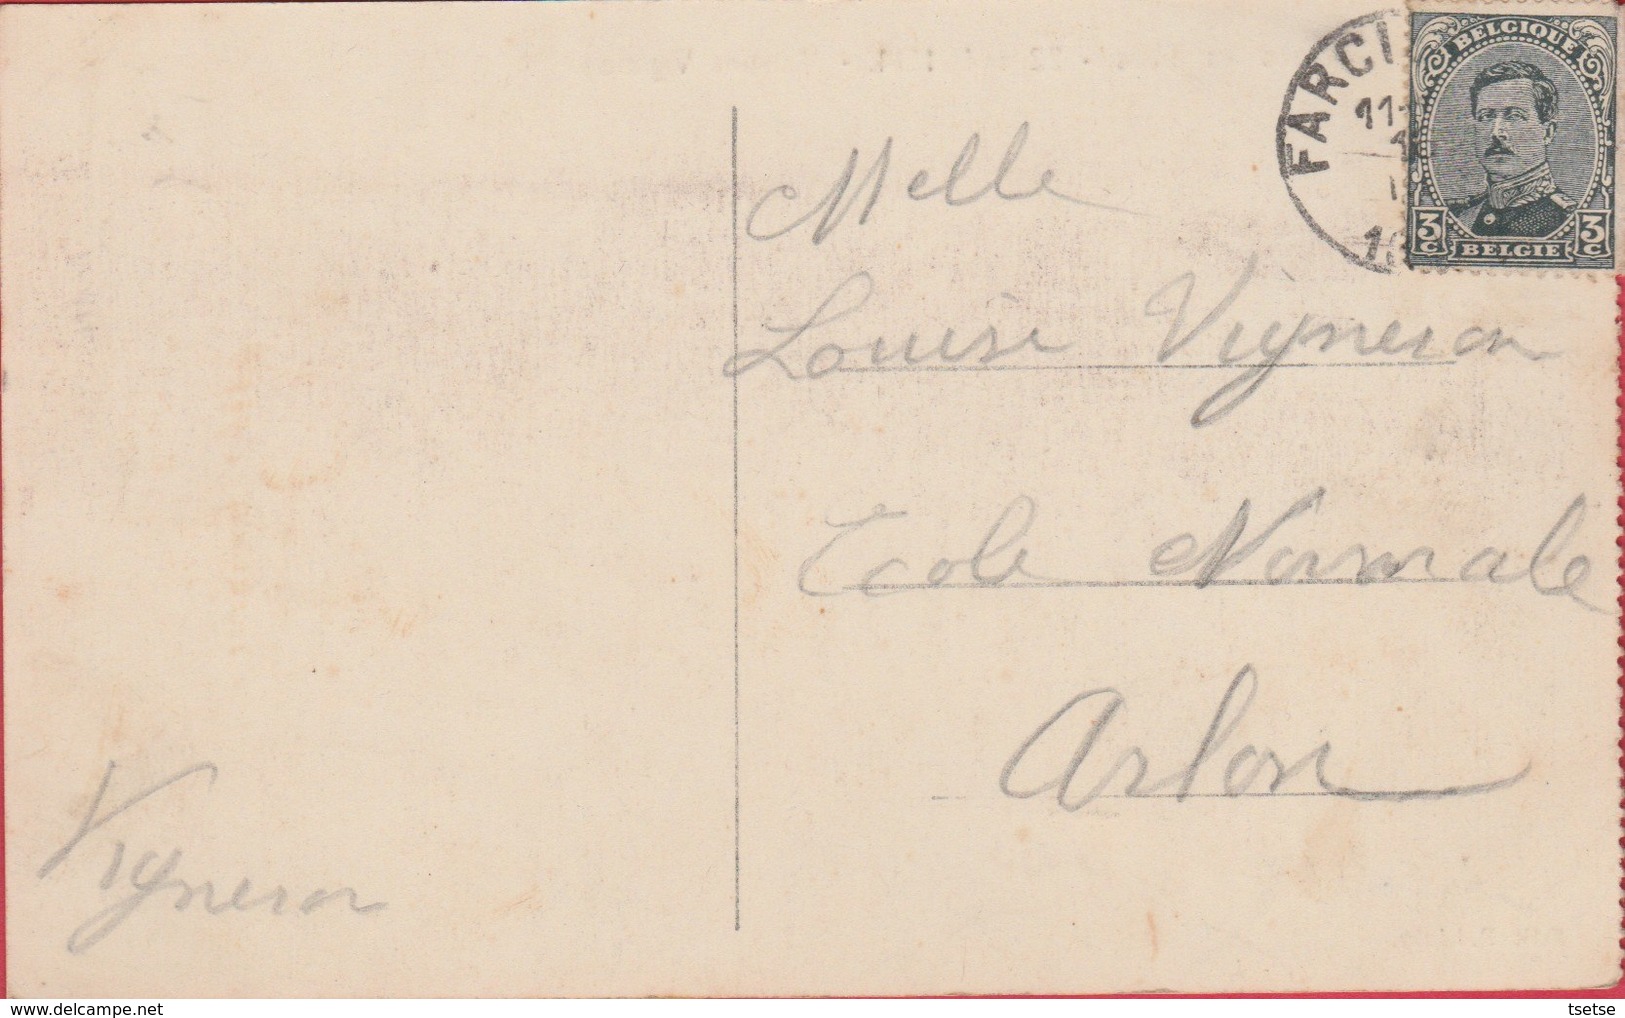 FARCI
11
BELGIQUE
3 C
3 C
BELGIE
Melle
Louise Vigneron
Ecole Normale
Arlon
Vigneron
https://www.delcampe.net
tsetse